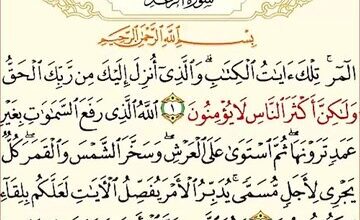 سورة الرعد
بِسْمِ ٱللَّهِ ٱلرَّحْمَٰنِ ٱلرَّحِيمِ
الٓمٓر ۚ تِلْكَ ءَايَٰتُ ٱلْكِتَٰبِ ۗ وَٱلَّذِىٓ أُنزِلَ إِلَيْكَ مِن رَّبِّكَ ٱلْحَقُّ
وَلَٰكِنَّ أَكْثَرَ ٱلنَّاسِ لَا يُؤْمِنُونَ ١ ٱللَّهُ ٱلَّذِى رَفَعَ ٱلسَّمَٰوَٰتِ بِغَيْرِ
عَمَدٍ تَرَوْنَهَا ۖ ثُمَّ ٱسْتَوَىٰ عَلَى ٱلْعَرْشِ ۖ وَسَخَّرَ ٱلشَّمْسَ وَٱلْقَمَرَ ۖ كُلٌّ
يَجْرِى لِأَجَلٍ مُّسَمًّى ۚ يُدَبِّرُ ٱلْأَمْرَ يُفَصِّلُ ٱلْءَايَٰتِ لَعَلَّكُم بِلِقَآءِ